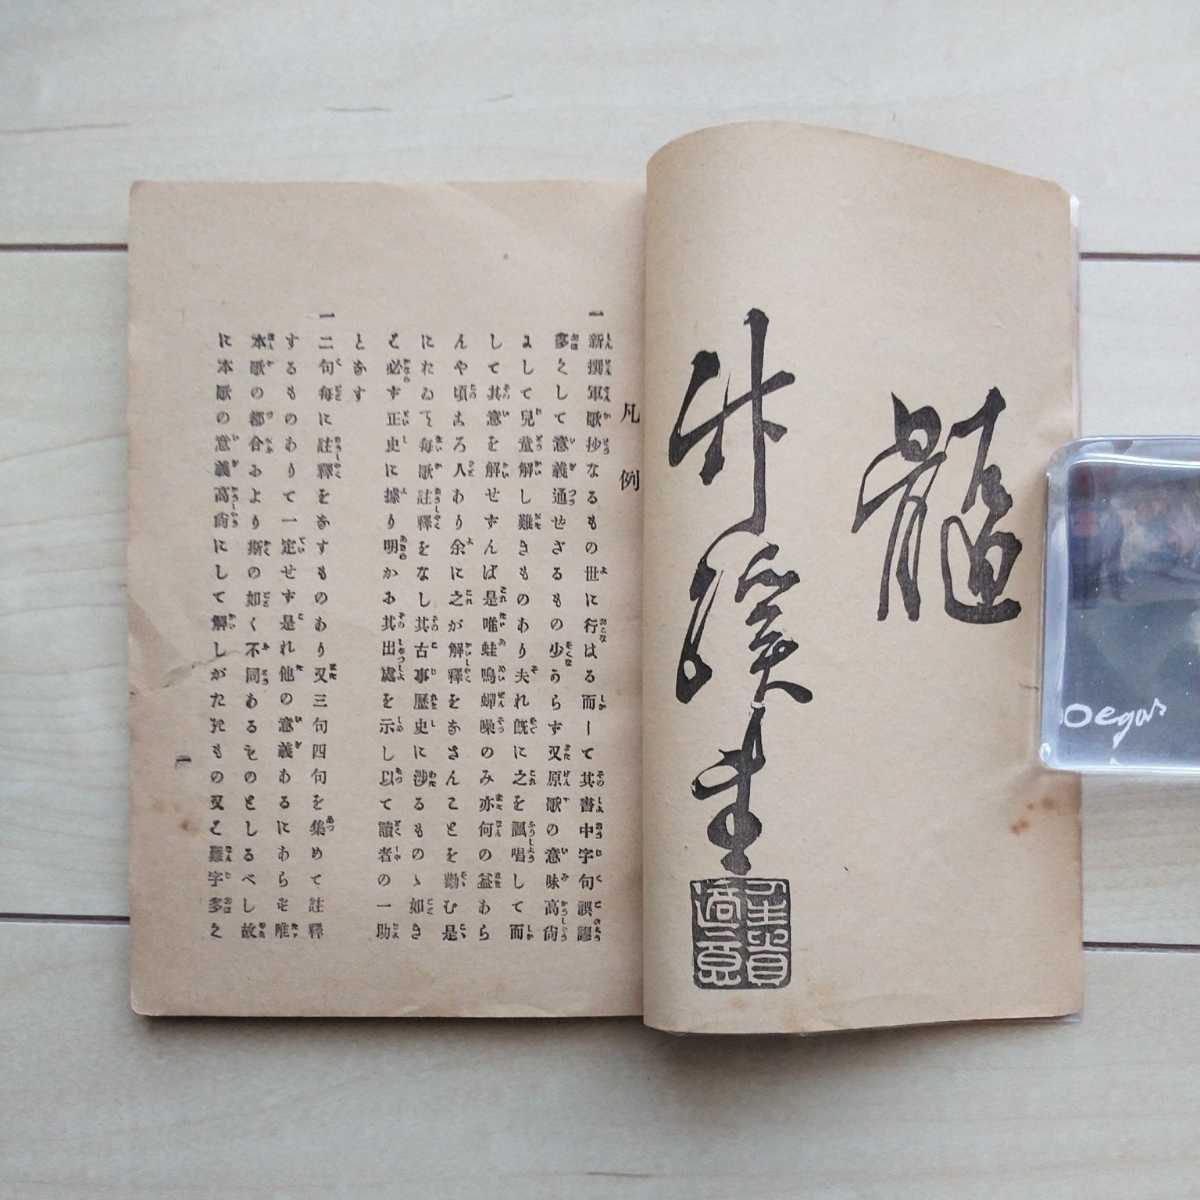 髓
竹溪圭
凡例
一新撰軍歌抄なるもの世に行はる而して其書中字句誤謬
多くして意義通せざるもの少からず又原歌の意味高尚
にして兒童解し難きものあり夫れ既に之を諷唱して而
して其意を解せずんば是唯蛙鳴蟬噪のみ亦何の益あら
んや頃ころ人あり余に之が解釋をなさんことを勸む是
に於て每歌註釋をなし其古事歷史に涉るものゝ如き
は必ず正史に據り明かに其出處を示し以て讀者の一助
となす
一二句每に註釋をなすものあり又三句四句を集めて註釋
するものありて一定せず是れ他の意義あるにあらず唯
本歌の都合により斯の如く不同あるものとしるべし故
に本歌の意義高尚にして解しがたきもの又は難字多く
一
oegar